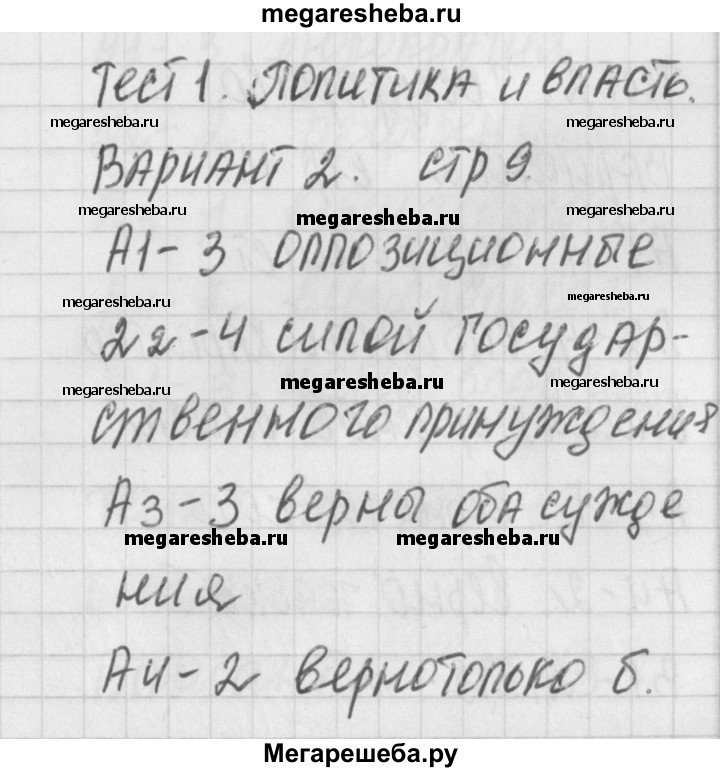 megaresheba.ru
Тест 1. Политика и власть.
megaresheba.ru megaresheba.ru
Вариант 2. стр 9.
megaresheba.ru megaresheba.ru megaresheba.ru
А1-3 оппозиционные
megaresheba.ru megaresheba.ru
22-4 силой государ-
megaresheba.ru megaresheba.ru megaresheba.ru
ственного принуждения
А3-3 верны оба сужде
megaresheba.ru megaresheba.ru
ния
А4-2 верно только б.
Мегарешеба.ру